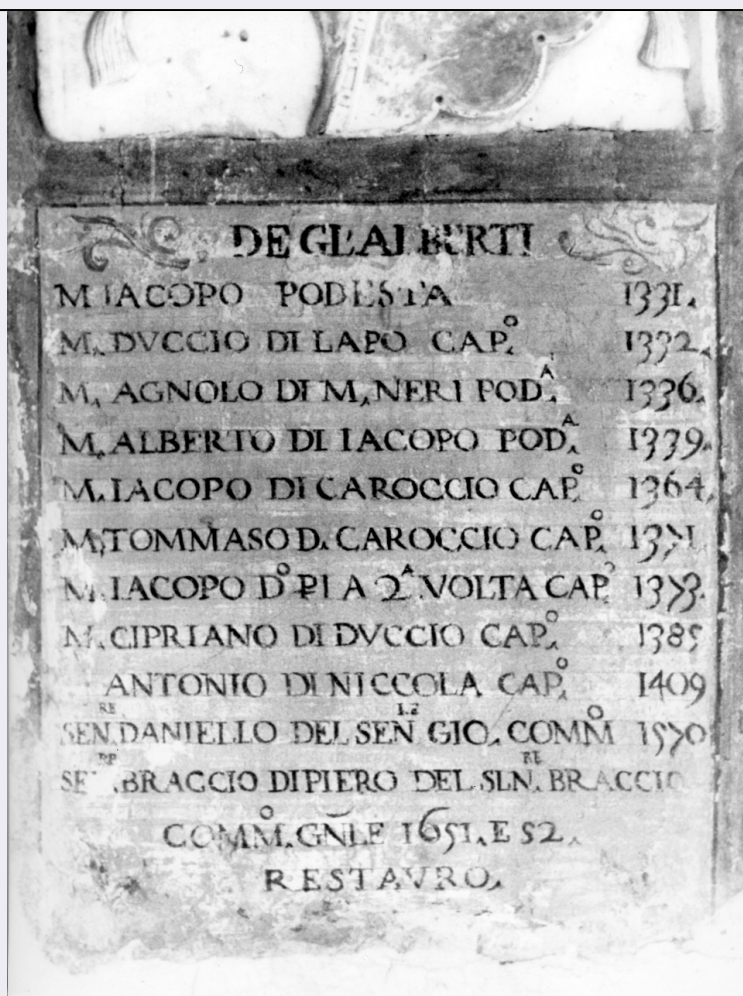 DE GL'ALBERTI
M IACOPO PODESTA 1331.
M. DVCCIO DI LAPO CAP.O 1332.
M. AGNOLO DI M. NERI POD.A 1336.
M. ALBERTO DI IACOPO POD.A 1339.
M. IACOPO DI CAROCCIO CAP.O 1364.
M. TOMMASO D. CAROCCIO CAP.O 1371.
M. IACOPO D.O PI A 2A VOLTA CAP.O 1373.
M. CIPRIANO DI DVCCIO CAP.O 1385
ANTONIO DI NICCOLA CAP.O 1409
SEN.RE DANIELLO DEL SEN GIO. COMM.O 1570
BRACCIO DI PIERO DEL SEN.RE BRACCIO
COMM.O GNLE 1651. E 52.
RESTAVRO.